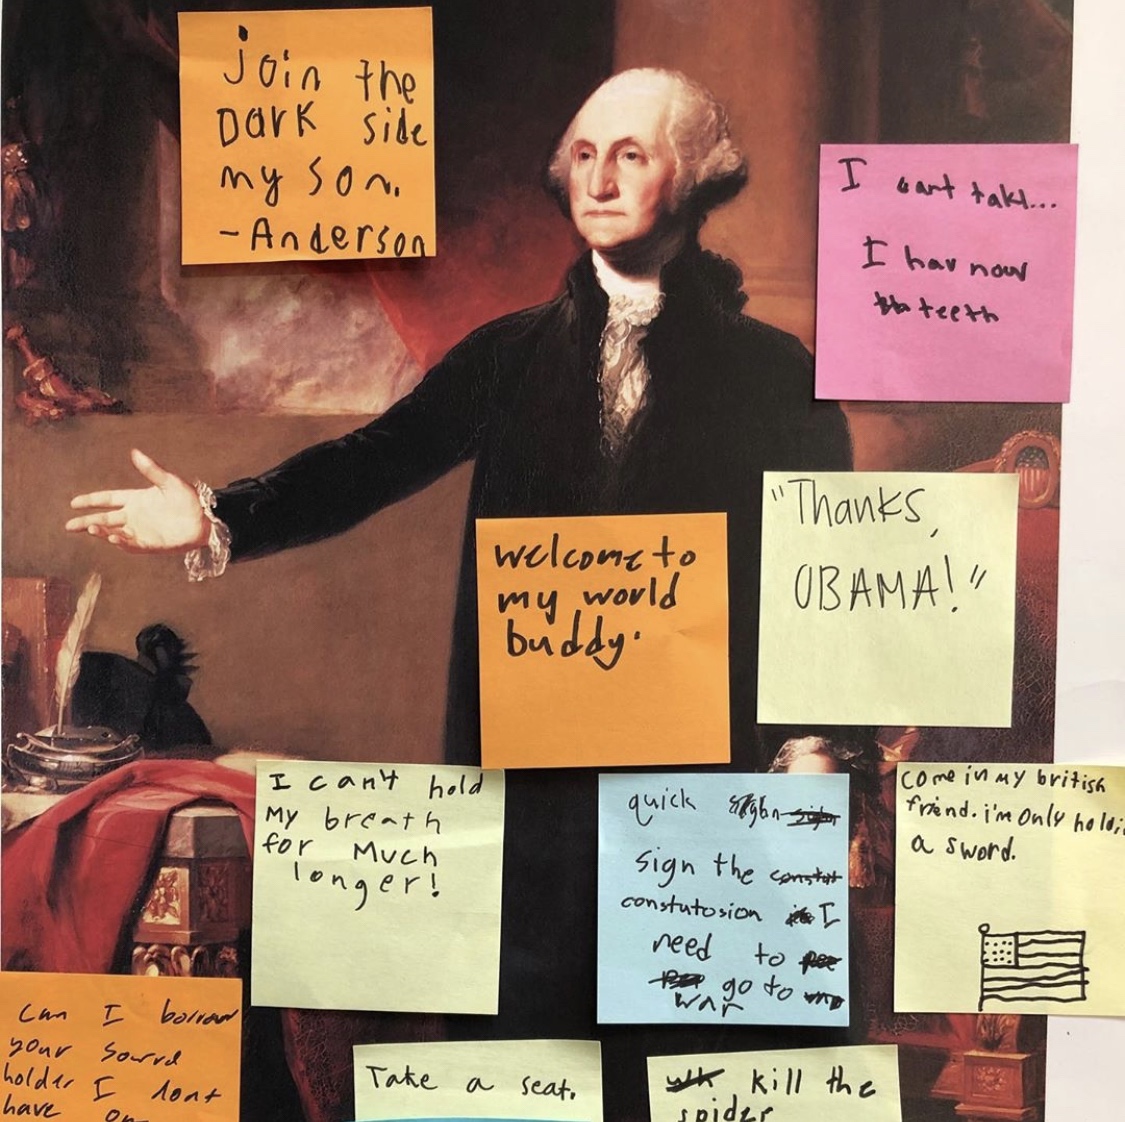 join the
Dark side
my son.
-Anderson
I cant takl...
I hav now
teeth
"Thanks,
OBAMA!"
welcome to
my world
buddy.
I can't hold
My breath
for Much
longer!
quick
sign the
constutosion I
need to
go to
war
come in my british
friend. i'm only holdi
a sword.
can I borrow
your sowrd
holder I dont
have on
Take a seat.
kill the
spider